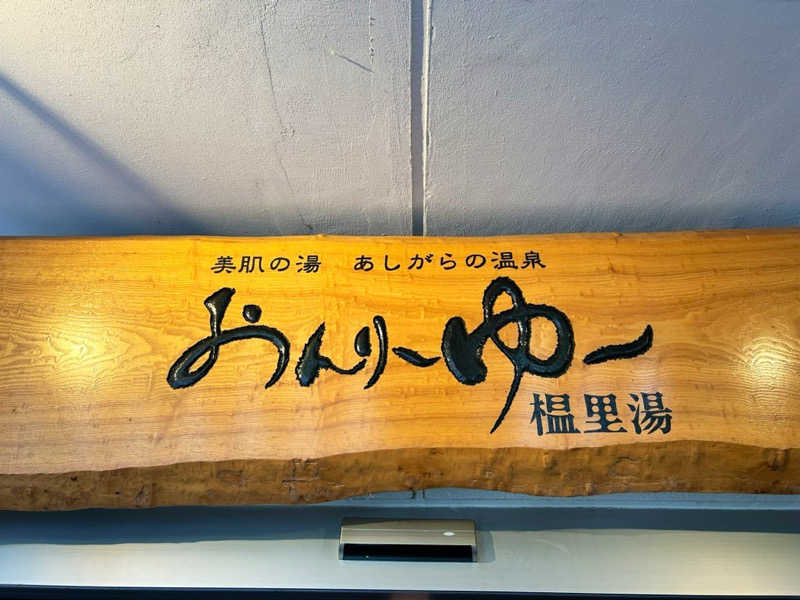 美肌の湯　あしがらの温泉
おんりーゆー
榲里湯